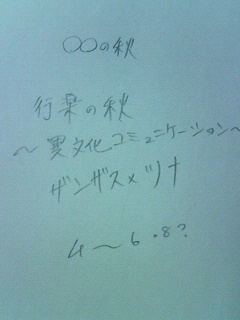 〇〇の秋
行楽の秋
～異文化コミュニケーション～
ザンザスxツナ
4～6.8?